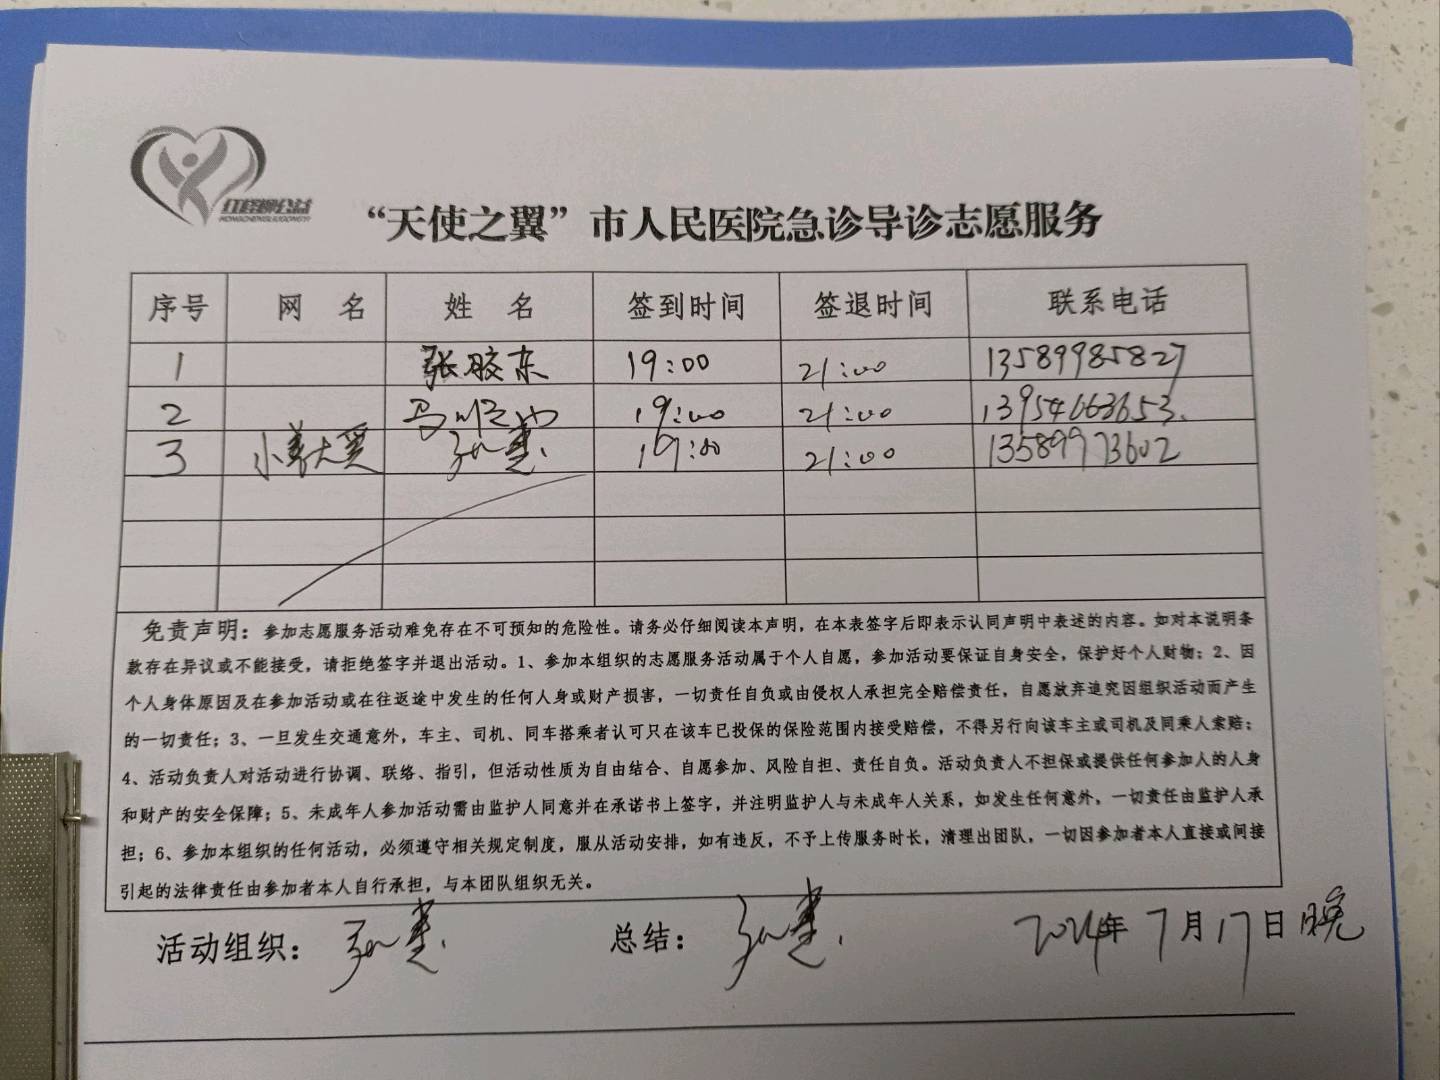 红柽柳公益
HONGCHENGLIUGONGYI
“天使之翼”市人民医院急诊导诊志愿服务
序号 网 名 姓 名 签到时间 签退时间 联系电话
1 张胶东 19:00 21:00 13589985827
2 19:00 21:00 13954663653.
3 19:00 21:00 13589973602
免责声明：参加志愿服务活动难免存在不可预知的危险性。请务必仔细阅读本声明，在本表签字后即表示认同声明中表述的内容。如对本说明条
款存在异议或不能接受，请拒绝签字并退出活动。1、参加本组织的志愿服务活动属于个人自愿，参加活动要保证自身安全，保护好个人财物；2、因
个人身体原因及在参加活动或在往返途中发生的任何人身或财产损害，一切责任自负或由侵权人承担完全赔偿责任，自愿放弃追究因组织活动而产生
的一切责任；3、一旦发生交通意外，车主、司机、同车搭乘者认可只在该车已投保的保险范围内接受赔偿，不得另行向该车主或司机及同乘人索赔；
4、活动负责人对活动进行协调、联络、指引，但活动性质为自由结合、自愿参加、风险自担、责任自负。活动负责人不担保或提供任何参加人的人身
和财产的安全保障；5、未成年人参加活动需由监护人同意并在承诺书上签字，并注明监护人与未成年人关系，如发生任何意外，一切责任由监护人承
担；6、参加本组织的任何活动，必须遵守相关规定制度，服从活动安排，如有违反，不予上传服务时长，清理出团队，一切因参加者本人直接或间接
引起的法律责任由参加者本人自行承担，与本团队组织无关。
活动组织： 总结： 2024年7月17日晚